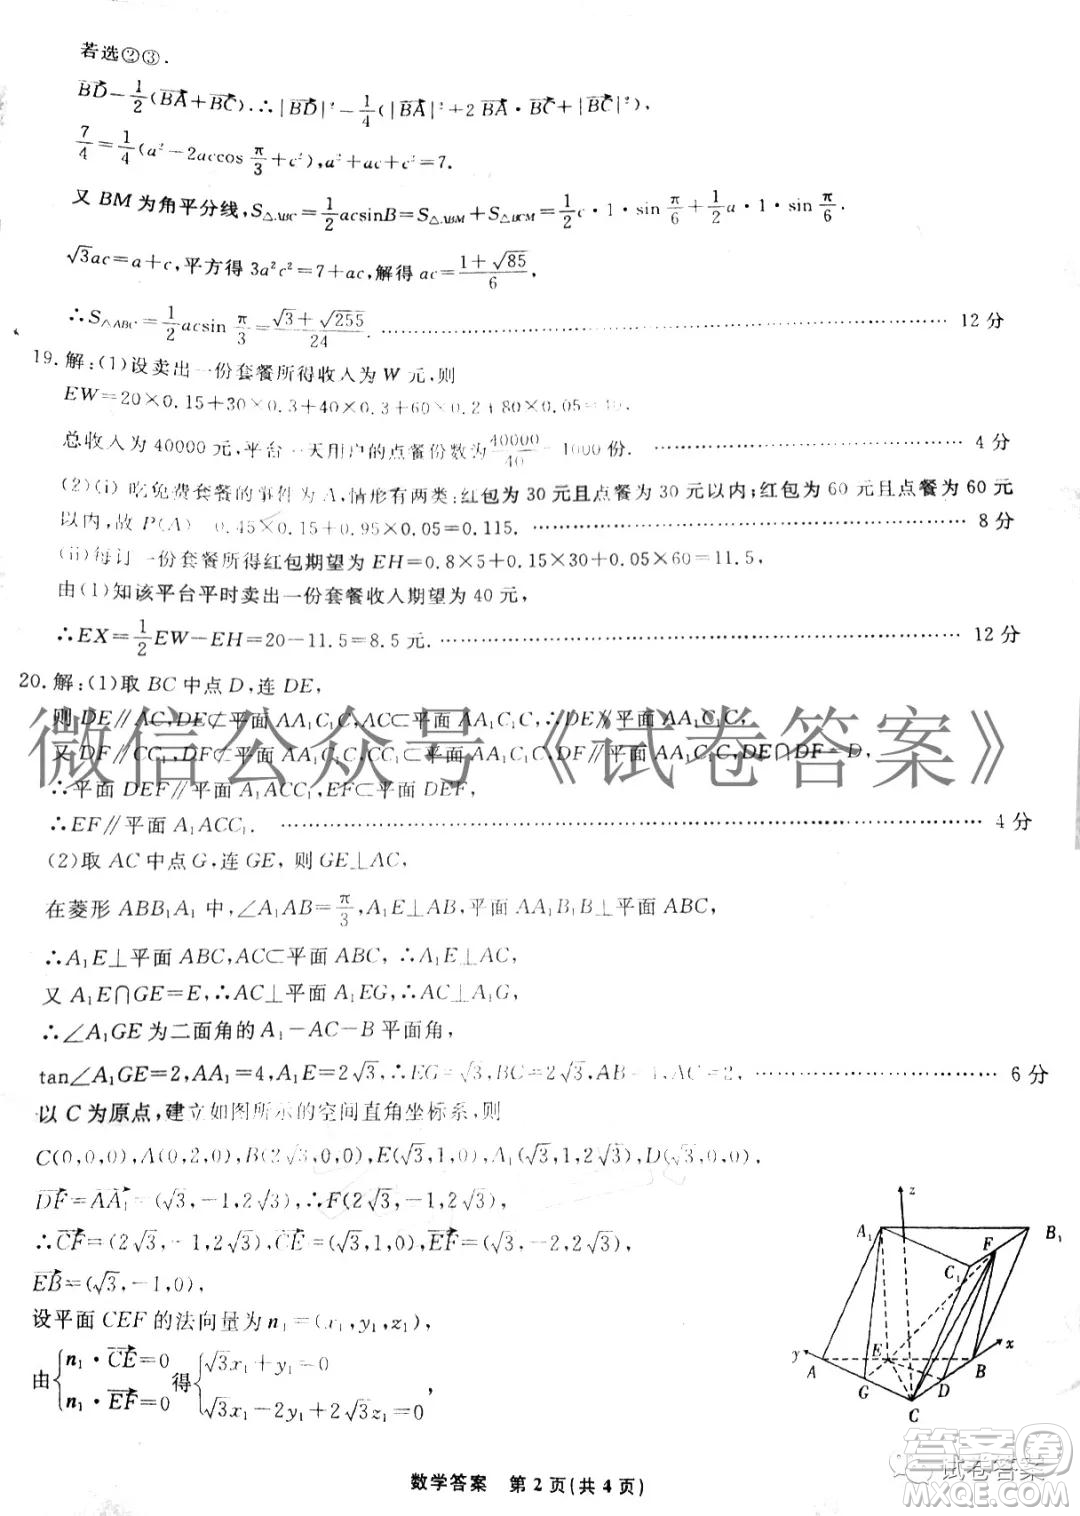 若选②③.
BD−1/2(BA+BC).∴|BD|²−1/4(|BA|²+2BA·BC+|BC|²),
7/4=1/4(a²−2accos π/3+c²),a²+ac+c²=7.
又BM为角平分线,S△ABC=1/2acsinB=S△ABM+S△BCM=1/2c·1·sin π/6+1/2a·1·sin π/6.
√3ac=a+c,平方得3a²c²=7+ac,解得ac=(1+√85)/6,
∴S△ABC=1/2acsin π/3=(√3+√255)/24. …… 12分
19.解:(1)设卖出一份套餐所得收入为W元,则
EW=20×0.15+30×0.3+40×0.3+60×0.2+80×0.05=40,
总收入为40000元,平台一天用户的点餐份数为40000/40=1000份. …… 4分
(2)(i)吃免费套餐的事件为A,情形有两类:红包为30元且点餐为30元以内;红包为60元且点餐为60元
以内,故P(A) 0.45×0.15+0.95×0.05=0.115. …… 8分
(ii)每订一份套餐所得红包期望为EH=0.8×5+0.15×30+0.05×60=11.5,
由(1)知该平台平时卖出一份套餐收入期望为40元,
∴EX=1/2EW−EH=20−11.5=8.5元. …… 12分
20.解:(1)取BC中点D,连DE,
则DE∥AC,DE⊄平面AA₁C₁C,AC⊂平面AA₁C₁C,∴DE∥平面AA₁C₁C,
又DF∥CC₁,DF⊄平面AA₁C₁C,CC₁⊂平面AA₁C₁C,∴DF∥平面AA₁C₁C,DE∩DF=D,
∴平面DEF∥平面A₁ACC₁,EF⊂平面DEF,
∴EF∥平面A₁ACC₁. …… 4分
(2)取AC中点G,连GE,则GE⊥AC,
在菱形ABB₁A₁中,∠A₁AB=π/3,A₁E⊥AB,平面AA₁B₁B⊥平面ABC,
∴A₁E⊥平面ABC,AC⊂平面ABC,∴AC⊥A₁E,
又A₁E∩GE=E,∴AC⊥平面A₁EG,∴AC⊥A₁G,
∴∠A₁GE为二面角的A₁−AC−B平面角,
tan∠A₁GE=2,AA₁=4,A₁E=2√3,∴EG=√3,BC=2√3,AC=2, …… 6分
以C为原点,建立如图所示的空间直角坐标系,则
C(0,0,0),A(0,2,0),B(2√3,0,0),E(√3,1,0),A₁(√3,1,2√3),D(√3,0,0),
DF=AA₁=(√3,−1,2√3),∴F(2√3,−1,2√3),
∴CF=(2√3,−1,2√3),CE=(√3,1,0),EF=(√3,−2,2√3),
EB=(√3,−1,0),
设平面CEF的法向量为n₁=(x₁,y₁,z₁),
由{n₁·CE=0 n₁·EF=0 得{√3x₁+y₁=0 √3x₁−2y₁+2√3z₁=0,
z
A₁ B₁ F C₁
y E x
A B
G D
C
数学答案 第2页(共4页)
微信公众号《试卷答案》
试卷答案
答案圈
MXQE.COM